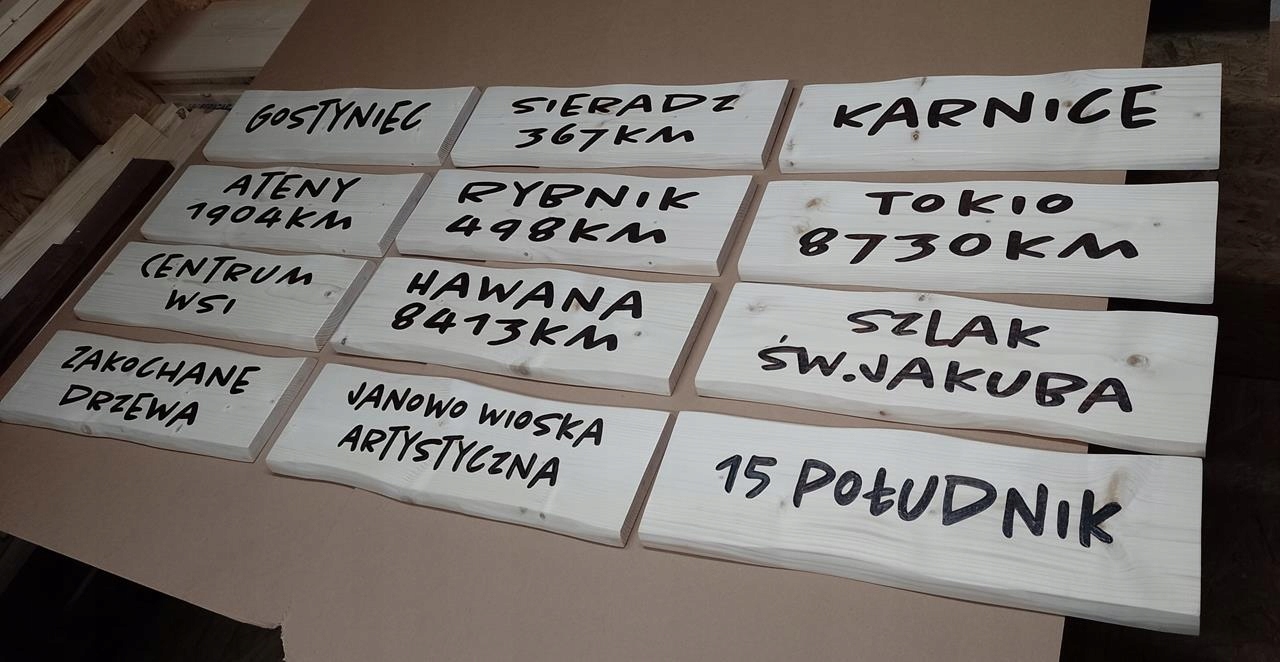 GOSTYNIEC
SIERADZ
367KM
KARNICE
ATENY
1904KM
RYBNIK
498KM
TOKIO
8730KM
CENTRUM
WSI
HAWANA
8413KM
SZLAK
ŚW.JAKUBA
ZAKOCHANE
DRZEWA
JANOWO WIOSKA
ARTYSTYCZNA
15 POŁUDNIK